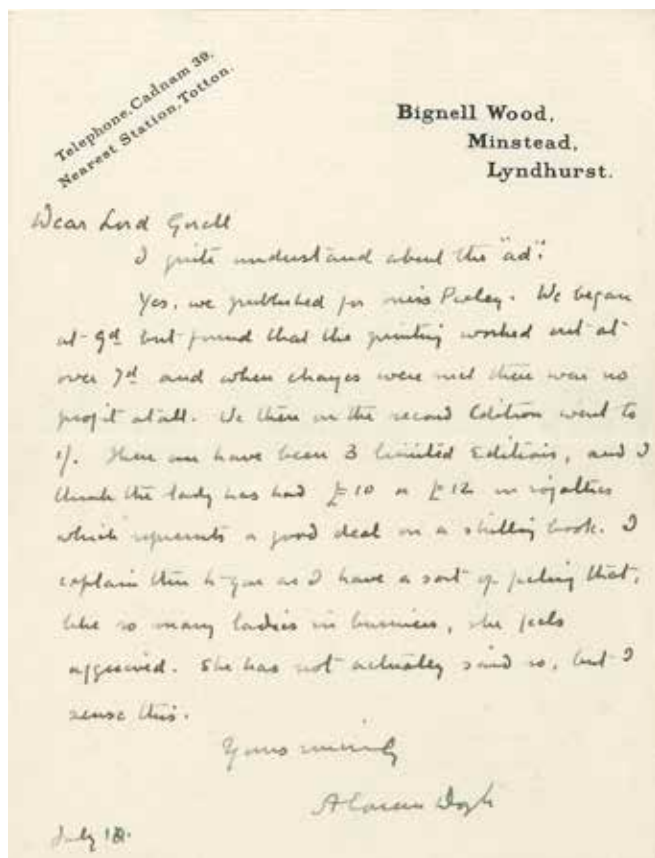 Telephone, Cadnam 39.
Nearest Station, Totton.
Bignell Wood,
Minstead,
Lyndhurst.
Dear Lord Gorell
I quite understand about the "ad".
Yes, we published for Miss . We began
at 9d but found that the printing worked out at
over 7d and when charges were met there was no
profit at all. We then in the second Edition went to
1/. There have been 3 limited Editions, and I
think the lady has had £10 or £12 in royalties
which represents a good deal on a shilling book. I
explain this to you as I have a sort of feeling that,
like so many ladies in business, she feels
aggrieved. She has not actually said so, but I
sense this.
Yours sincerely
A Conan Doyle
July 18.